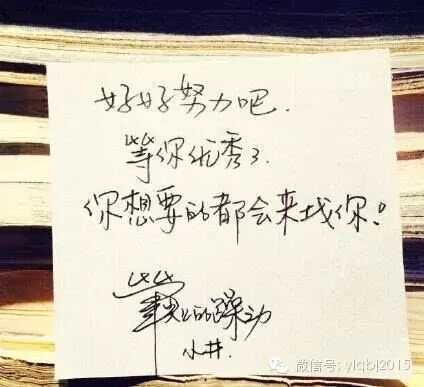 好好努力吧.
等你优秀了.
你想要的都会来找你!
笔尖上的躁动
小井.
微信号: ylqbj2015